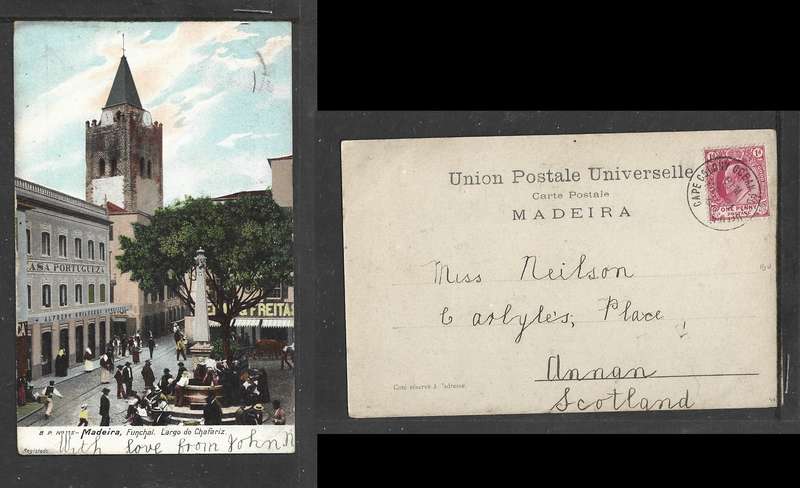 ASA PORTUGUEZA
FREITAS
B. P. Nº 115 - Madeira, Funchal. Largo do Chafariz
Registado
With love from John N
Union Postale Universelle
Carte Postale
MADEIRA
CAPE COLONY
ONE PENNY
Miss Neilson
Carlyle's, Place
Annan
Scotland
Coté réservé à l'adresse